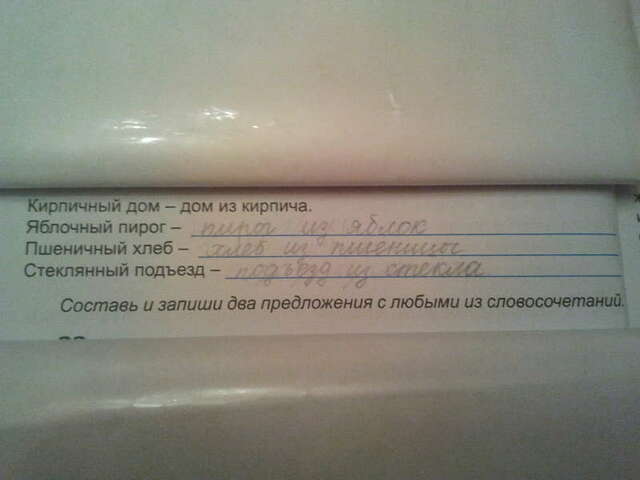 Кирпичный дом – дом из кирпича.
Яблочный пирог – пирог из яблок
Пшеничный хлеб – хлеб из пшеницы
Стеклянный подъезд – подъезд из стекла
Составь и запиши два предложения с любыми из словосочетаний.